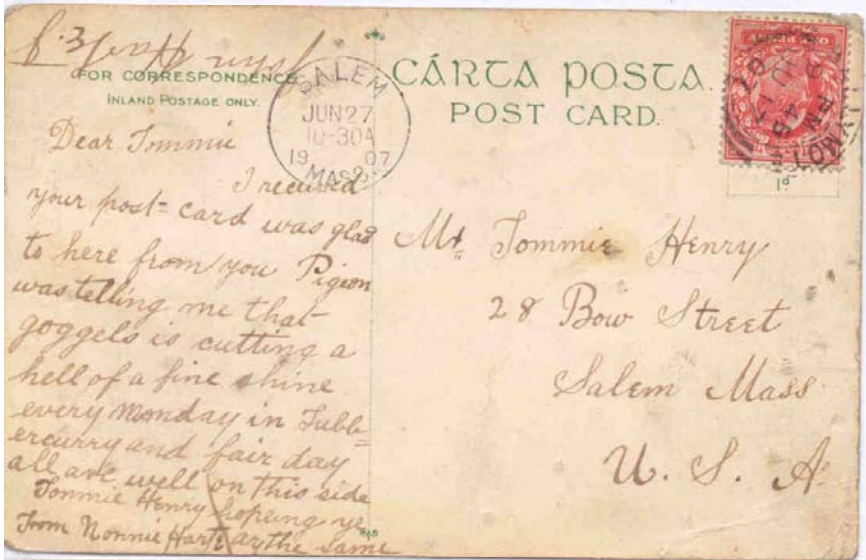 John Harte.
FOR CORRESPONDENCE
INLAND POSTAGE ONLY.
SALEM
JUN 27
10-30A
1907
MASS.
CÁRTA POSTA.
POST CARD.
1ᴅ
Dear Tommie
I recieved
your post-card was glad
to here from you Pigeon
was telling me that
goggels is cutting a
hell of a fine shine
every Monday in Tubb=
ercurry and fair day
all are well on this side
Tommie Henry hopeing ye
From Nonnie Harte ar the same
Mr Tommie Henry
28 Bow Street
Salem Mass
U. S. A